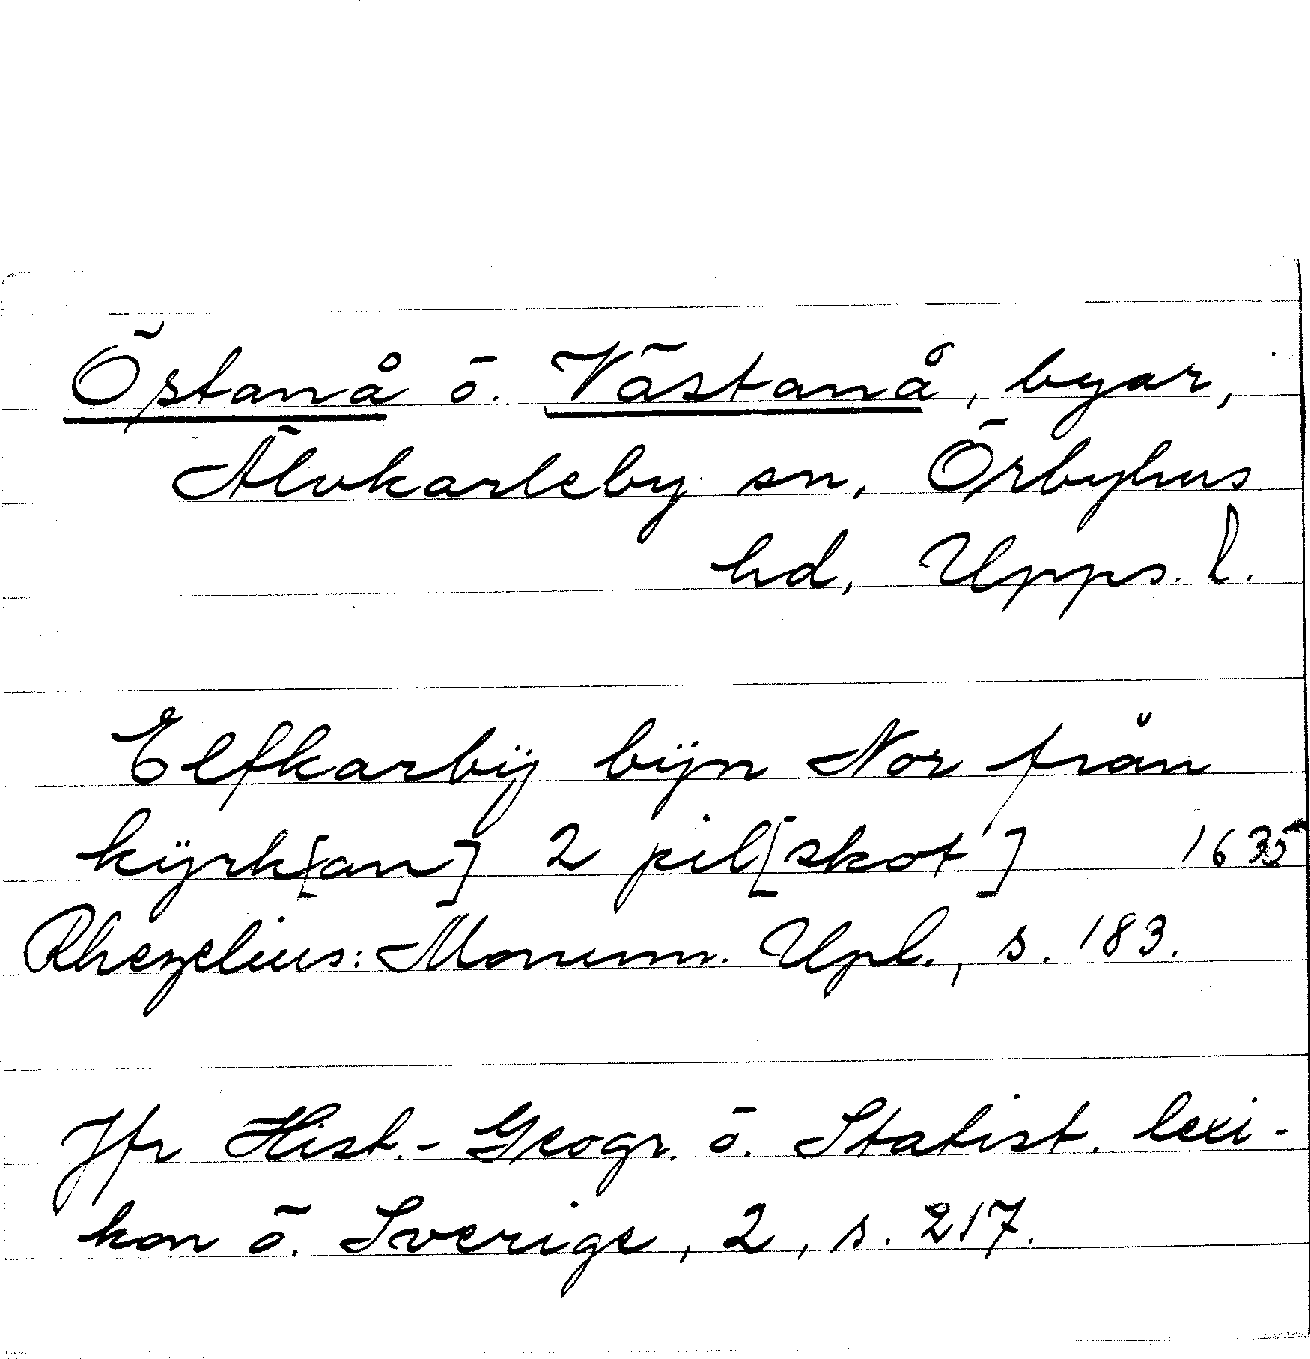 Östanå ö. Västanå, byar,
Älvkarleby sn, Örbyhus
hd, Upps. l.
Elfkarbÿ bÿn Nor från
kÿrk[an] 2 pil[skot] 1635
Rhezelius: Monum. Upl., s. 183.
Jfr Hist.-Geogr. ö. Statist. lexi-
kon ö. Sverige, 2, s. 217.